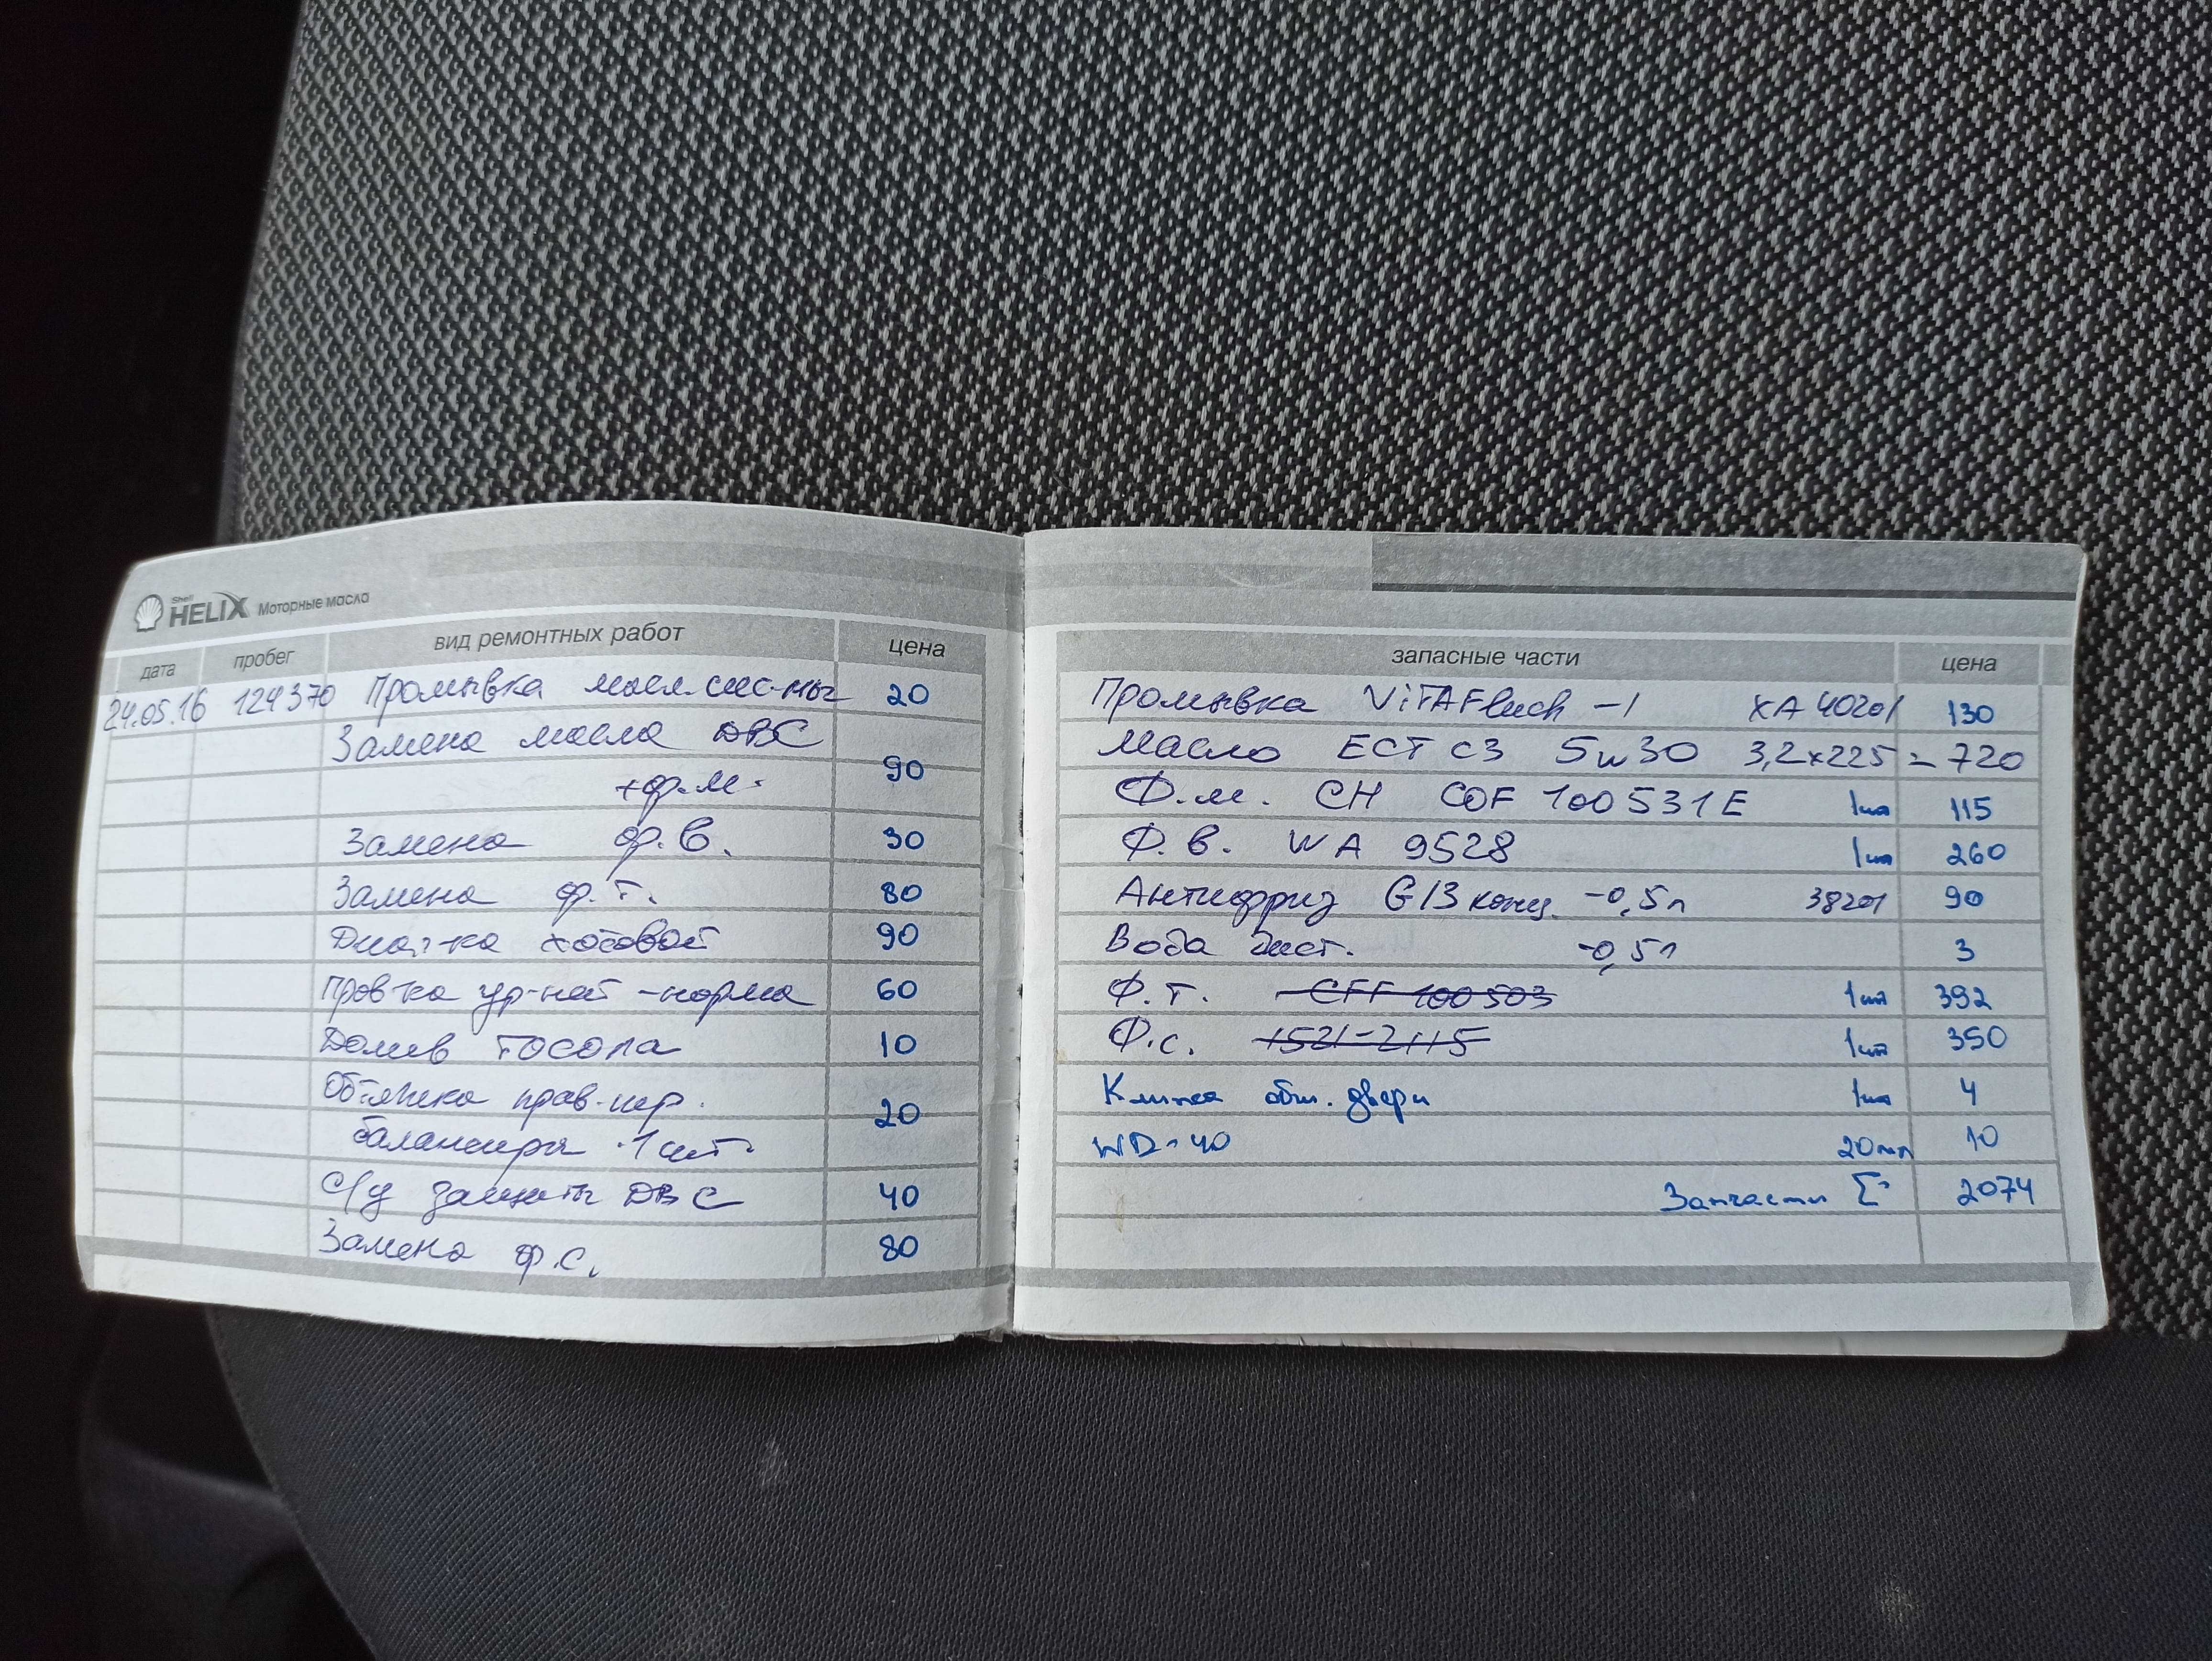 Shell
HELIX Моторные масла
дата пробег вид ремонтных работ цена
24.05.16 124370 Промывка масл. сис-мы 20
Замена масла ДВС
+ф.м. 90
Замена ф.в. 30
Замена ф.т. 80
Диаг-ка ходовой 90
Пров-ка ур-ней - норма 60
Долив тосола 10
Обтяжка прав. шар.
балансиры 1 шт. 20
С/у защиты ДВС 40
Замена ф.с. 80
запасные части цена
Промывка ViTAFlush -1 XA 40201 130
Масло ECT C3 5w30 3,2x225 = 720
Ф.м. CH COF 100531E 1шт 115
Ф.в. WA 9528 1шт 260
Антифриз G13 конц. -0,5л 38201 90
Вода дист. -0,5л 3
Ф.т. CFF 100503 1шт 392
Ф.с. 1521-2115 1шт 350
Клипса обш. двери 1шт 4
WD-40 20мл 10
Запчасти Σ 2074